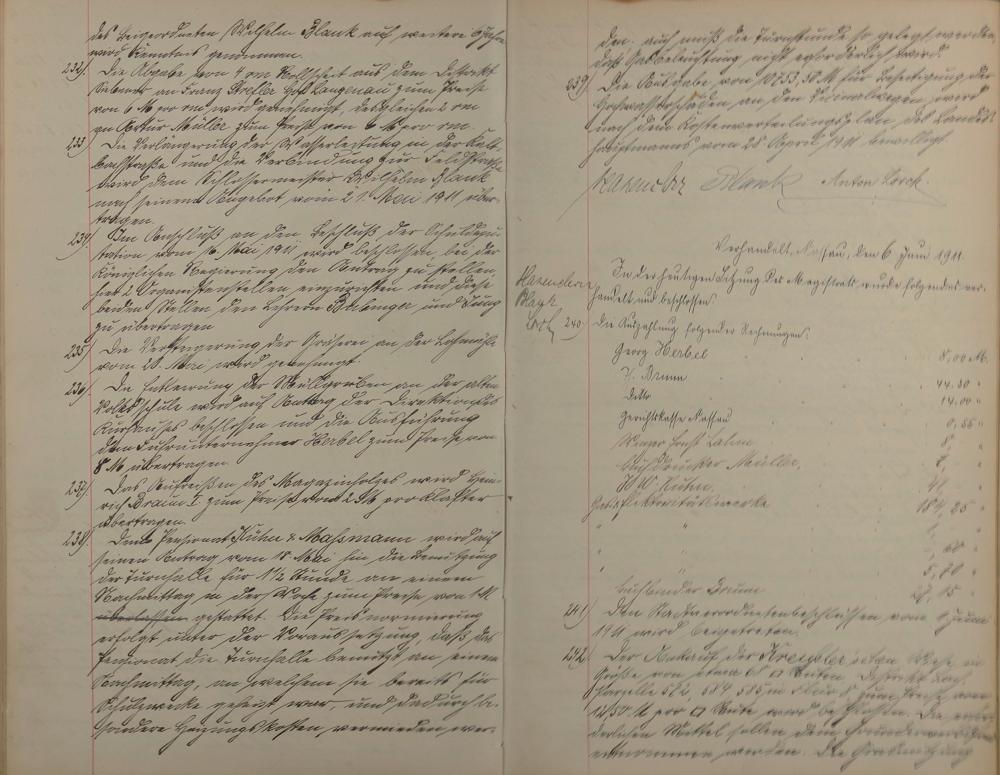 des Beigeordneten Wilhelm Blank auf weitere 6 Jahre
wird Kenntnis genommen.
232). Die Abgabe von 4 rm Rollscheit aus dem Distrikt
an Franz Langenau zum Preise
von 6 M pro rm wird genehmigt, desgleichen 2 rm
an Artur Müller zum Preise von 6 M pro rm.
233 Die Verlängerung der Wasserleitung in der Kalt-
bachstraße und die Verbindung zur Feldstraße
wird dem Schlossermeister Wilhelm Blank
nach seinem Angebot vom 21. Mai 1911 über-
tragen.
234) Im Anschluß an den Beschluß der Schuldepu-
tation vom 16. Mai 1911 wird beschlossen, bei der
Königlichen Regierung den Antrag zu stellen,
hier 2 Organistenstellen einzurichten und diese
beiden Stellen den Lehrern Bubinger und Jung
zu übertragen
235) Die Versteigerung der Gräserei an der Lohmühle
vom 28. Mai wird genehmigt.
236) Die Entleerung der Müllgruben an der alten
Volksschule wird auf Antrag der Direktion des
Kurhauses beschlossen und die Ausführung
dem Fuhrunternehmer Herbel zum Preise von
8 M übertragen.
237) Das Aufreißen des Magazinholzes wird Hein-
rich Braun I zum Preise von 2 M pro Klafter
übertragen.
238) Dem Pensionat Kuhn & Massmann wird auf
seinen Antrag vom 18. Mai hin die Benutzung
der Turnhalle für 1 1/2 Stunde an einem
Nachmittag in der Woche zum Preise von 1 M
überlassen gestattet. Die Preisnormierung
erfolgt unter der Voraussetzung, daß das
Pensionat die Turnhalle benützt an einem
Nachmittag, an welchem sie bereits für
Schulzwecke geheizt war und dadurch be-
sondere Heizungskosten vermieden wer-
den. auch muß die Turnstunde so gelegt werden,
daß Gasbeleuchtung nicht erforderlich wird.
239) Die Ausgabe von 10753,58 M für Beseitigung der
Hochwasserschäden an den Vicinalwegen wird
nach dem Kostenverteilungsplan des Landes-
hauptmanns vom 25. April 1911 bewilligt.
Hasenclever Blank Anton Lorch.
Verhandelt, Nassau, den 6 Juni 1911.
Hasenclever
Lorch
In der heutigen Sitzung des Magistrats wurde folgendes ver-
handelt und beschlossen:
240 Die Auszahlung folgender Rechnungen:
Georg Herbel 8,00 M.
J. Braun 44.80 "
Ditto 14.00 "
Gerichtskasse Nassau 0,55 "
Winzer Ernst Lahm 8, "
Buchdrucker Müller, 7, "
W. Kuhn, 41, "
Gas & Elektricitätswerke 184,25 "
" "
" " 5,70 "
Buchbinder Braun 27,15 "
241) Den Stadtverordnetenbeschlüssen vom 1 Juni
1911 wird beigetreten.
242) Der Ankauf der Wiese in
Größe von etwa 68 □ Ruten, Distrikt
Parzelle 582, 584, 585 zum Preise von
12,50 M pro □ Rute wird beschlossen. Die erfor-
derlichen Mittel sollen dem
entnommen werden. Die Genehmigung